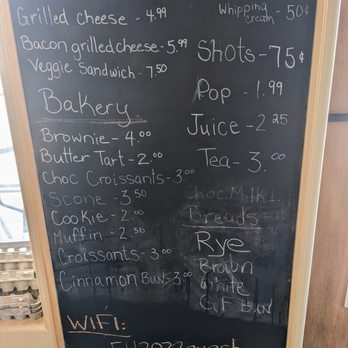 Grilled cheese - 4.99
Bacon grilled cheese - 5.99
Veggie Sandwich - 7.50
Bakery
Brownie - 4.00
Butter Tart - 2.00
Choc Croissants - 3.00
Scone - 3.50
Cookie - 2.00
Muffin - 2.50
Croissants - 3.00
Cinnamon Bun - 3.00
WIFI:
Whipping cream - 50¢
Shots - 75¢
Pop - 1.99
Juice - 2.25
Tea - 3.00
Choc. Milk
Breads
Rye
Brown
White
G.F Bun